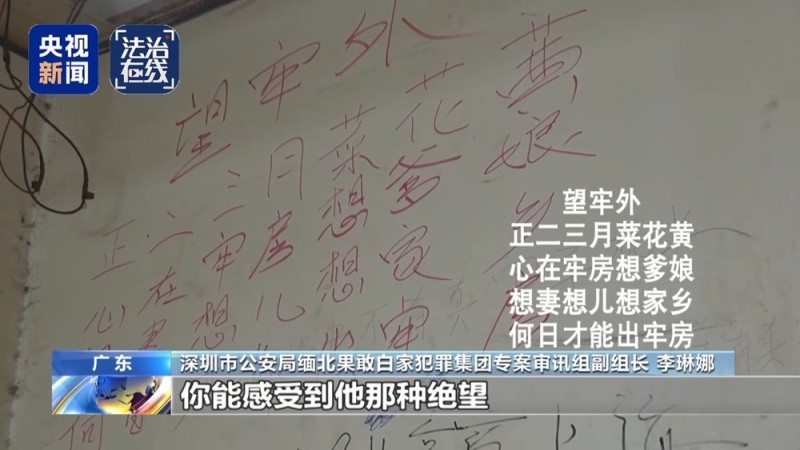 央视新闻
法治在线
望牢外
正二三月菜花黄
望牢外
正二三月菜花黄
心在牢房想爹娘
想妻想儿想家乡
何日才能出牢房
广东
深圳市公安局缅北果敢白家犯罪集团专案审讯组副组长 李琳娜
你能感受到他那种绝望